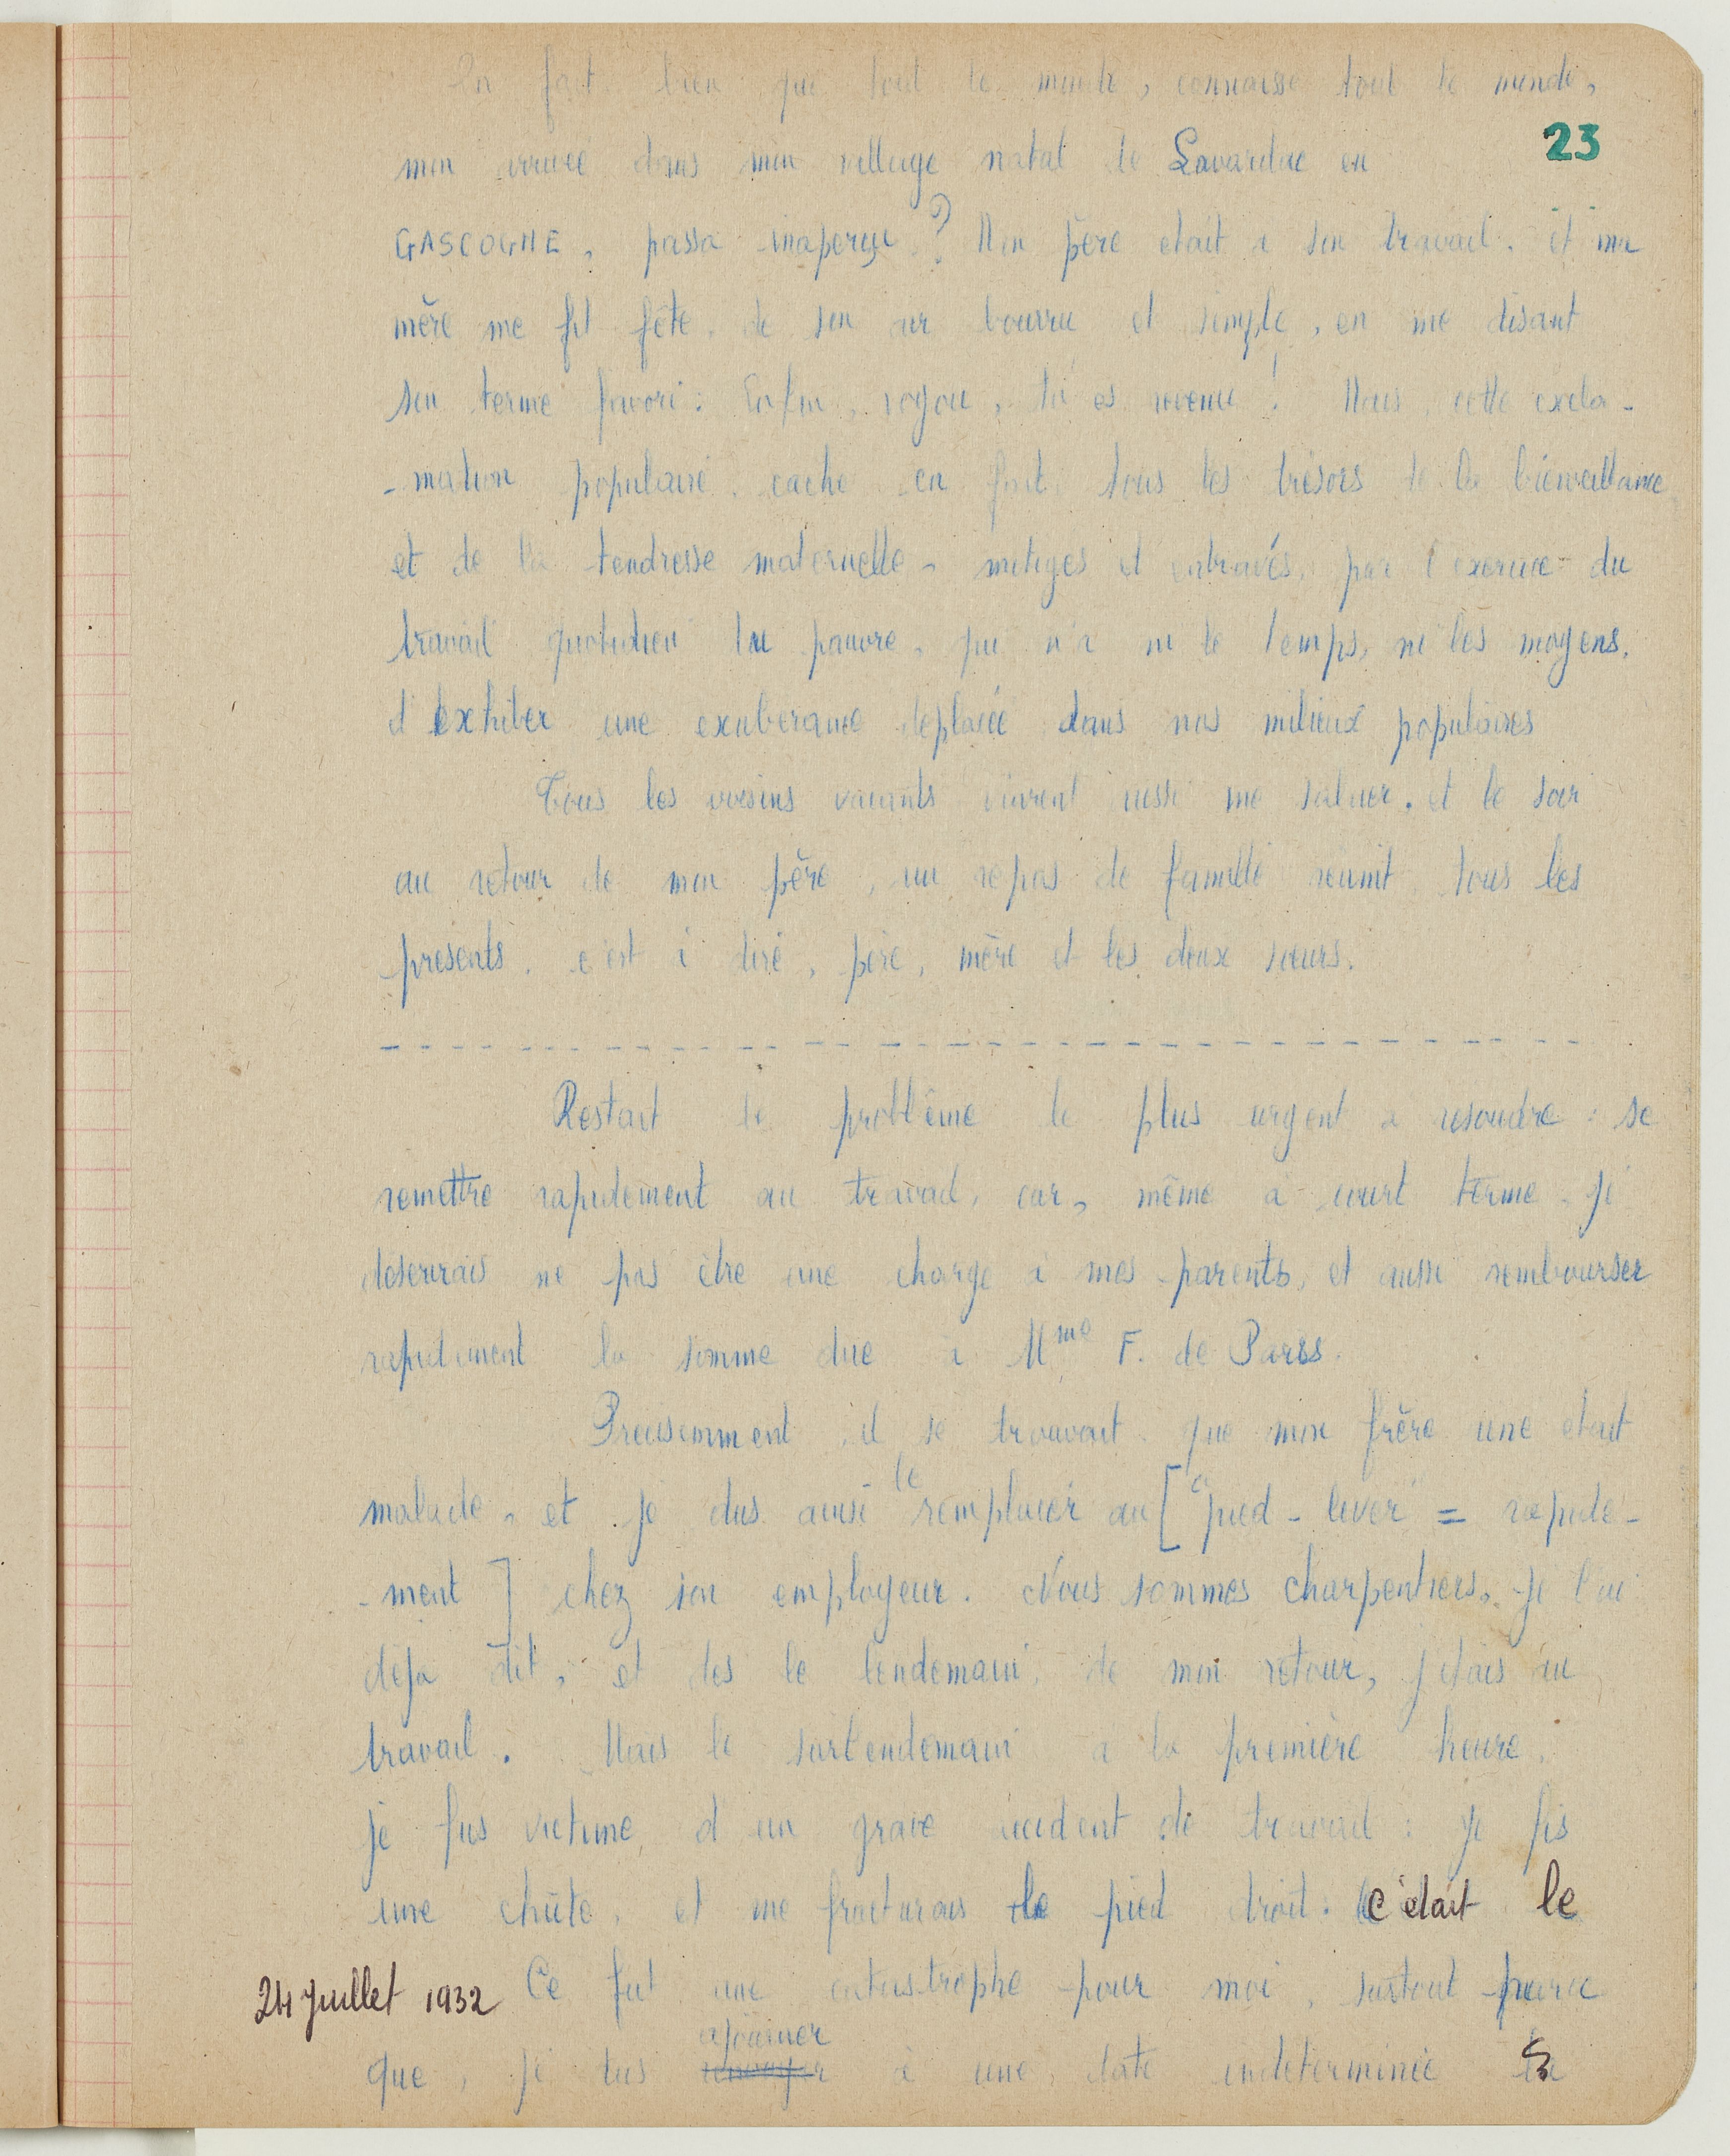 En fait bien que tout le monde, connaisse tout le monde,
23
mon arrivée dans mon village natal de Lavardac en
GASCOGNE, passa inaperçu ? Mon père etait a son travail. et ma
mère me fit fête, de son air bourru et simple, en me disant
son terme favori : Enfin, voyou, tu es revenu ! Mais, cette excla-
-mation populaire, cache en fait, tous les trésors de la bienveillance
et de la tendresse maternelle, mitiges et entravés, par l'exercice du
travail quotidien du pauvre, qui n'a ni le temps, ni les moyens,
d'exhiber une exuberance deplacée dans nos milieux populaires
Tous les voisins vacants vinrent aussi me saluer. et le soir
au retour de mon père, un repas de famille reunit tous les
presents, c'est à dire, père, mère et les deux sœurs.
Restait le problème le plus urgent a resoudre : se
remettre rapidement au travail, car, même a court terme je
desirais ne pas être une charge a mes parents, et aussi rembourser
rapidement la somme due a Mme F. de Paris.
Precisemment, il se trouvait que mon frère une etait
malade, et je dus ainsi le remplacer au ["pied-lever" = rapide-
-ment ] chez son employeur. Nous sommes charpentiers, je l'ai
deja dit, et des le lendemain, de mon retour, j'etais au
travail. Mais le surlendemain a la première heure,
je fus victime, d'un grave accident de travail : je fis
une chûte, et me fracturais le pied droit. c'etait le
24 juillet 1932 Ce fut une catastrophe pour moi, surtout parce
ajourner
que, je dus à une, date indeterminée